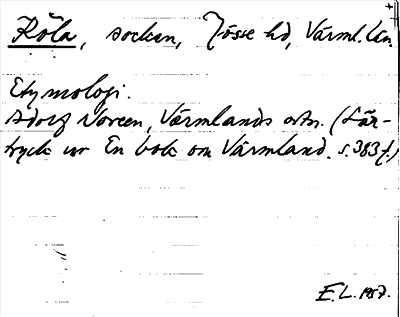 Köla, socken, Jösse hd, Värml. län
Etymologi.
Adolf Noreen, Värmlands ortn. (Sär-
tryck ur En bok om Värmland. s. 383 f.)
E.L. 1957.